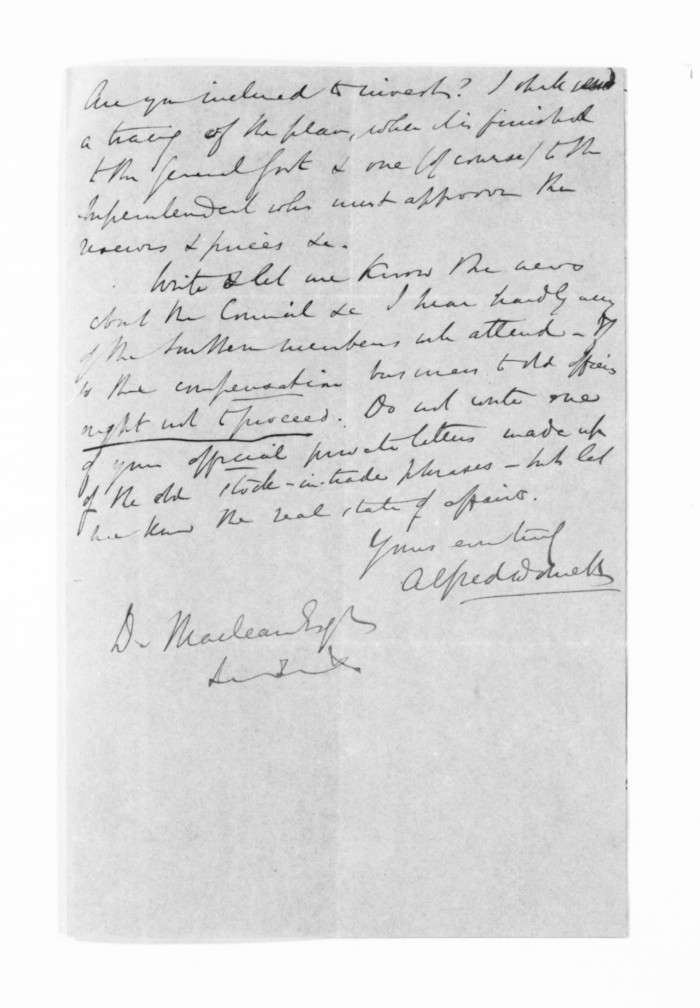 Are you inclined to invest? I shall send
a tracing of the plan, when it is finished
to the General Govt & one (of course) to the
Superintendent who must approve the
reserves & prices &c.
Write & let me know the news
about the Council &c I hear hardly any
of the Southern members will attend - If
so the compensation business to old officers
might not to proceed. Do not write one
of your official private letters made up
of the old stock-in-trade phrases - but let
me know the real state of affairs.
Yours evertruly
Alfred Domett
D. Maclean Esqr
&c &c &c